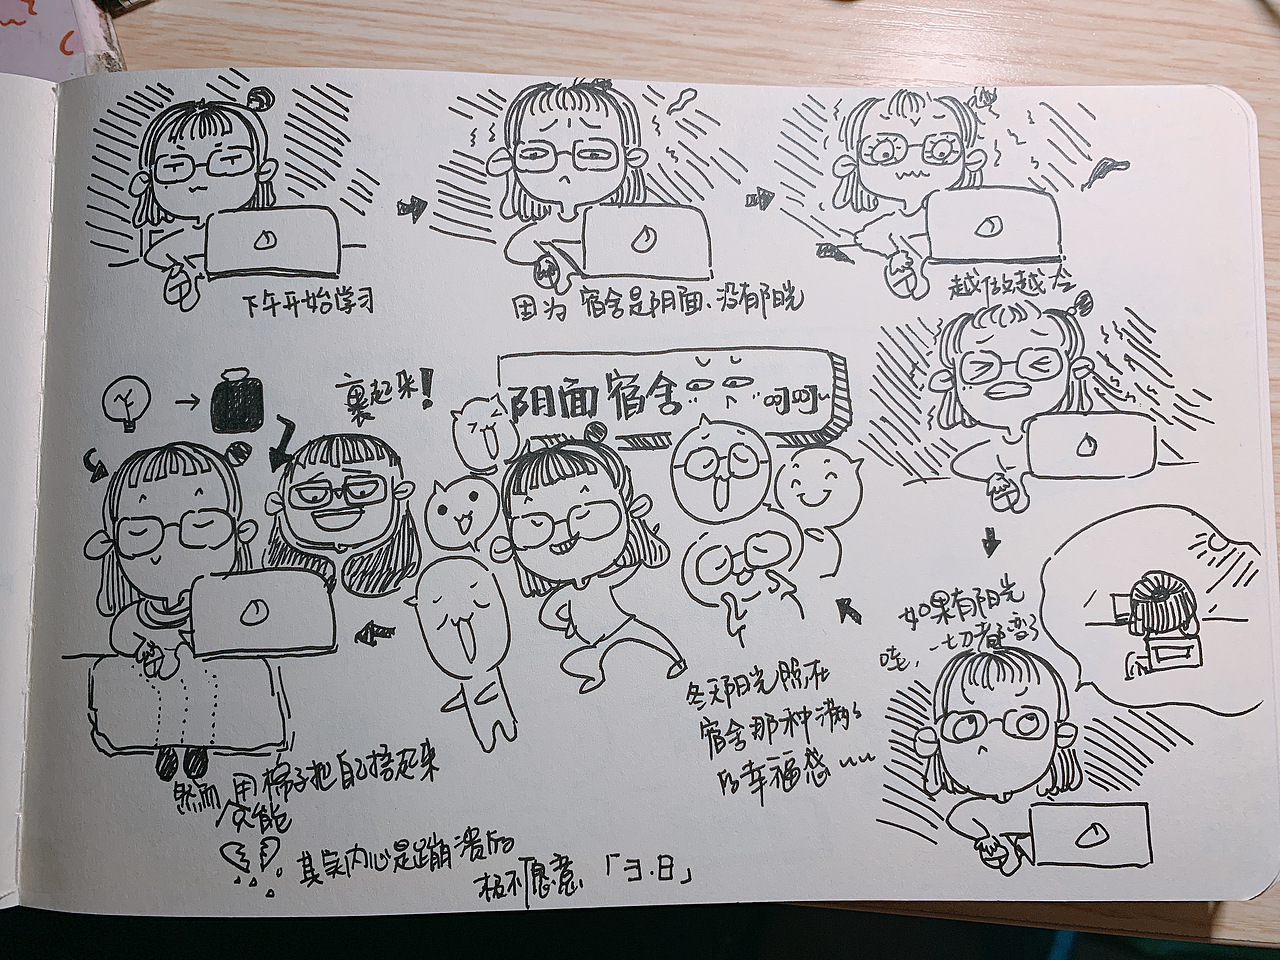 下午开始学习
因为 宿舍是阴面、没有阳光
越做越冷
如果有阳光
哇，一切都变了
阴面宿舍 呵呵~
冬天阳光照在
宿舍那种满满
的幸福感~~
裹起来！
然而 用棉子把自己捂起来
只能
其实内心是蹦溃的
极不愿意「3.8」